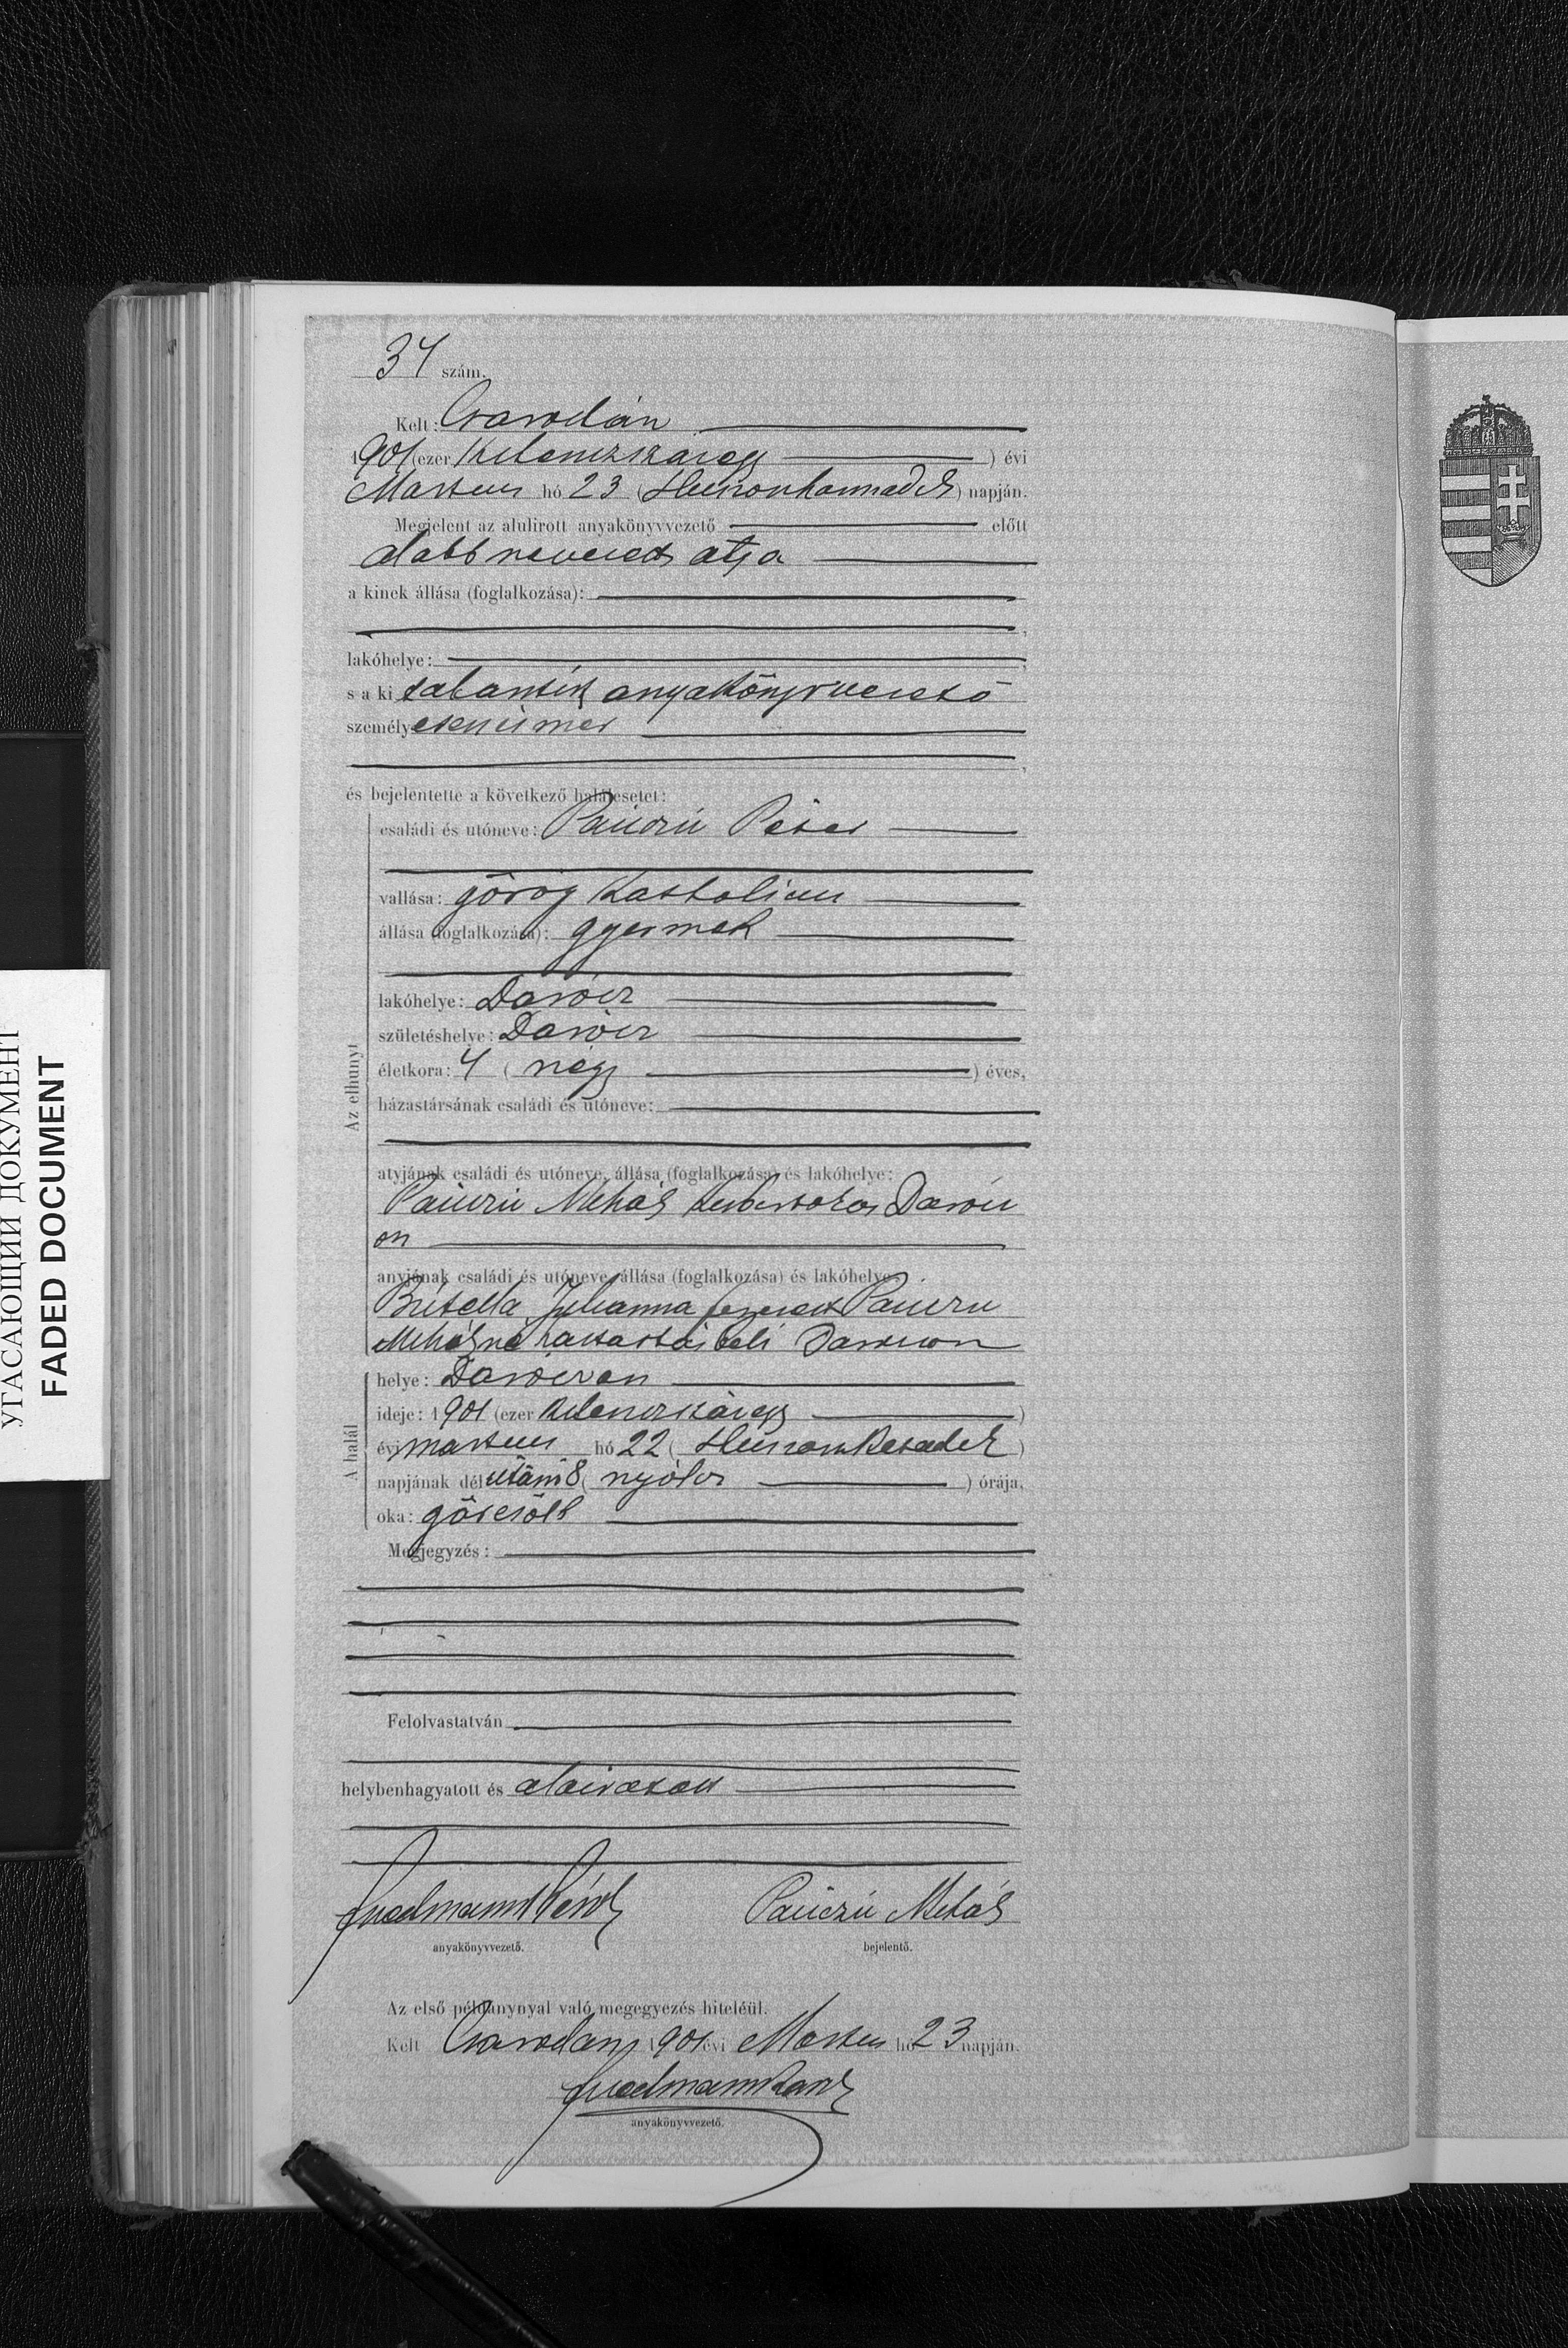 34 szám.
Kelt: Csarodán
1901 (ezer kilenczszázegy) évi
Martius hó 23 (Huszonharmadik) napján.
Megjelent az alulirott anyakönyvvezető előtt
alabb nevezett atja
a kinek állása (foglalkozása):
lakóhelye:
s a ki anyakönyvvezető
személyesen ismer
és bejelentette a következő halálesetet:
Az elhunyt
családi és utóneve: Pauczu Péter
vallása: görög katholicus
állása (foglalkozása): gyermek
lakóhelye: Darócz
születéshelye: Darócz
életkora: 4 (négy) éves,
házastársának családi és utóneve:
atyjának családi és utóneve, állása (foglalkozása) és lakóhelye:
Pauczu Mihály Darócz
on
anyjának családi és utóneve, állása (foglalkozása) és lakóhelye:
Julianna Pauczu
Mihályné háztartásbeli
A halál
helye: Daróczon
ideje: 1901 (ezer kilenczszázegy)
évi martius hó 22 (Huszonkettedik)
napjának dél utáni 8 (nyólcz) órája,
oka: görcsök
Megjegyzés:
Felolvastatván
helybenhagyatott és aláiratott
Pauczu Mihály
anyakönyvvezető. bejelentő.
Az első példánynyal való megegyezés hiteléül.
Kelt Csarodan 1901 évi Martius hó 23 napján.
anyakönyvvezető.
УГАСАЮЩИЙ ДОКУМЕНТ
FADED DOCUMENT